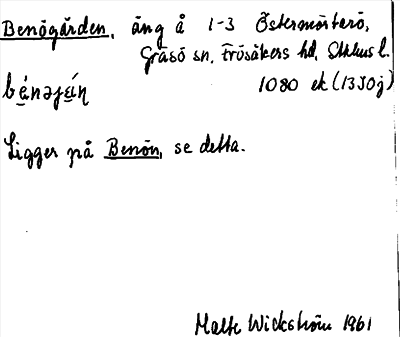 Benögården, äng å 1-3 Östermörterö,
Gräsö sn, Frösåkers hd, Sthlms l.
1080 ek (13J0j)
Ligger på Benön, se detta.
Malte Wickström 1961